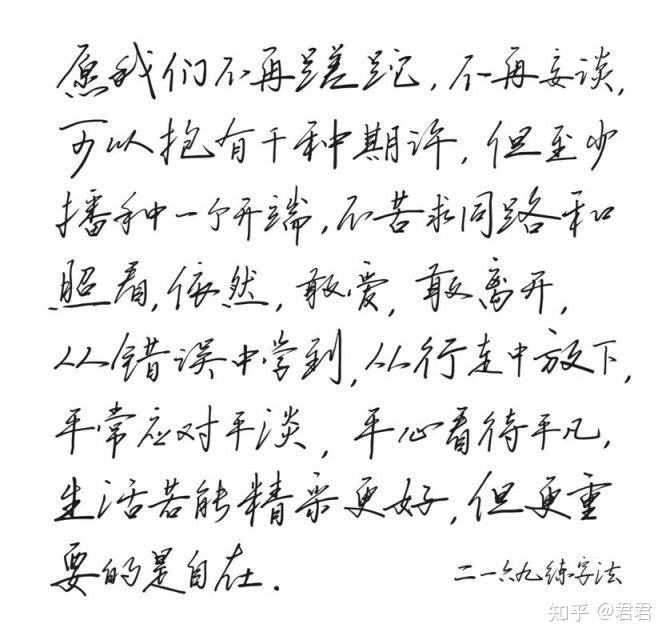 愿我们不再蹉跎，不再妄谈，
可以抱有千种期许，但至少
播种一个开端，不苦求同路和
照看，依然，敢爱，敢离开，
从错误中学到，从行走中放下，
平常应对平淡，平心看待平凡，
生活若能精采更好，但更重
要的是自在.
二一六九练字法
知乎 @君君